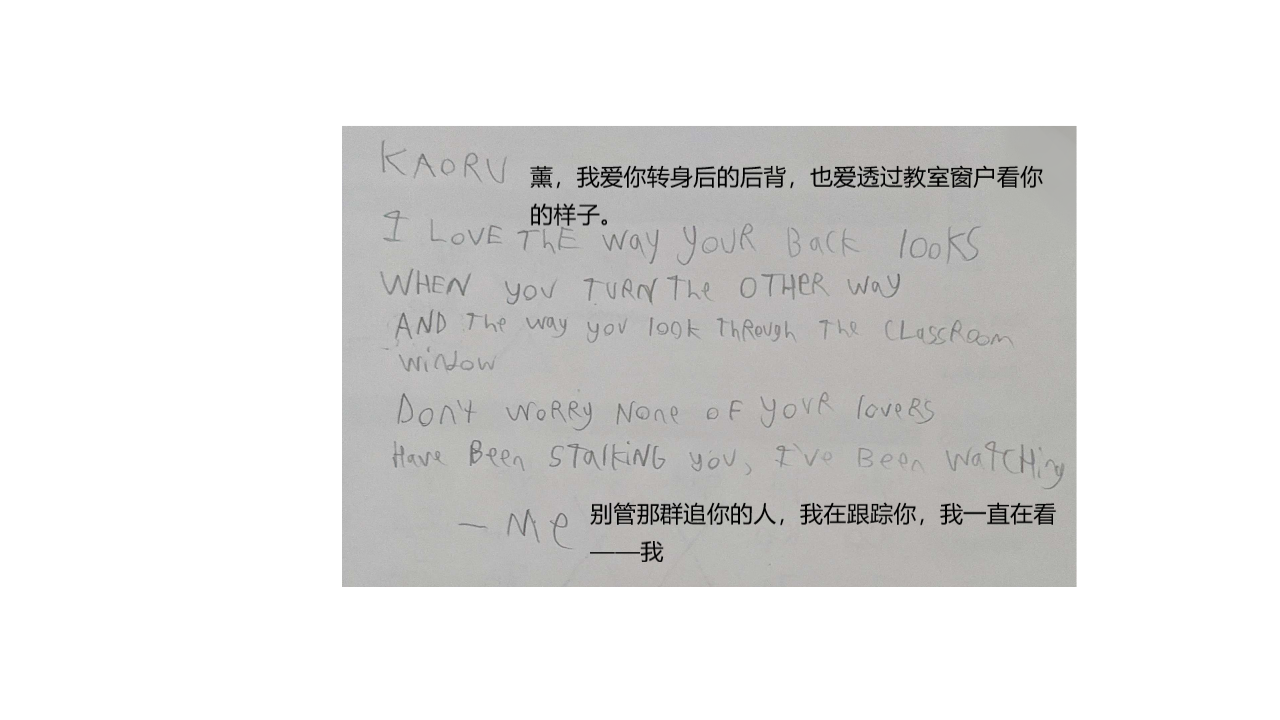 KAORU
薰，我爱你转身后的后背，也爱透过教室窗户看你
的样子。
I LOVE ThE way YOUR Back looKS
WHEN you TURN The OTHER way
AND The way you look ThRough The CLassRoom
window
Don't woRRy None oF YOUR loveRS
Have Been STalKiNG you, I've Been waTCHing
— Me
别管那群追你的人，我在跟踪你，我一直在看
——我